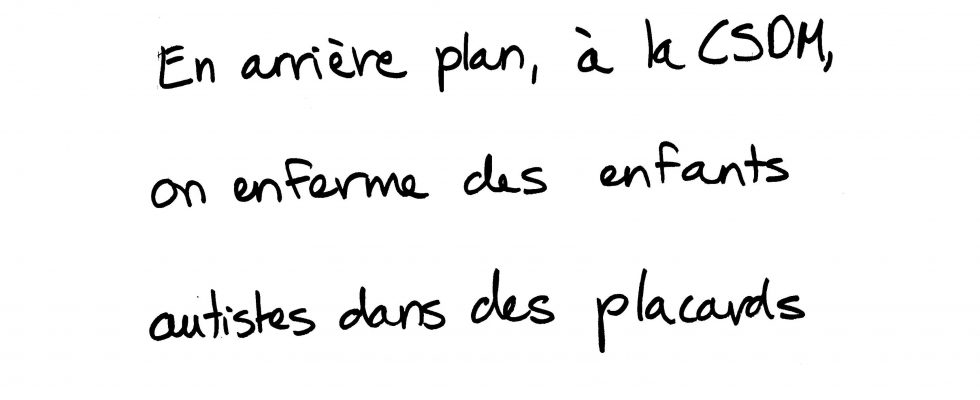 En arrière plan, à la CSDM,
on enferme des enfants
autistes dans des placards